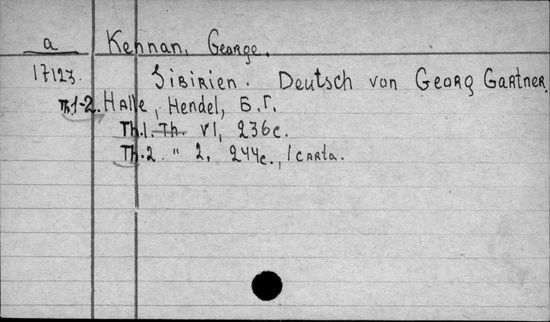 a Kennan, George.
17123. Sibirien. Deutsch von Georg Gartner.
Th.1-2. Halle, Hendel, Б.Г.
Th.1. Th. VI, 236с.
Th.2. " 2, 244с., 1 carta.